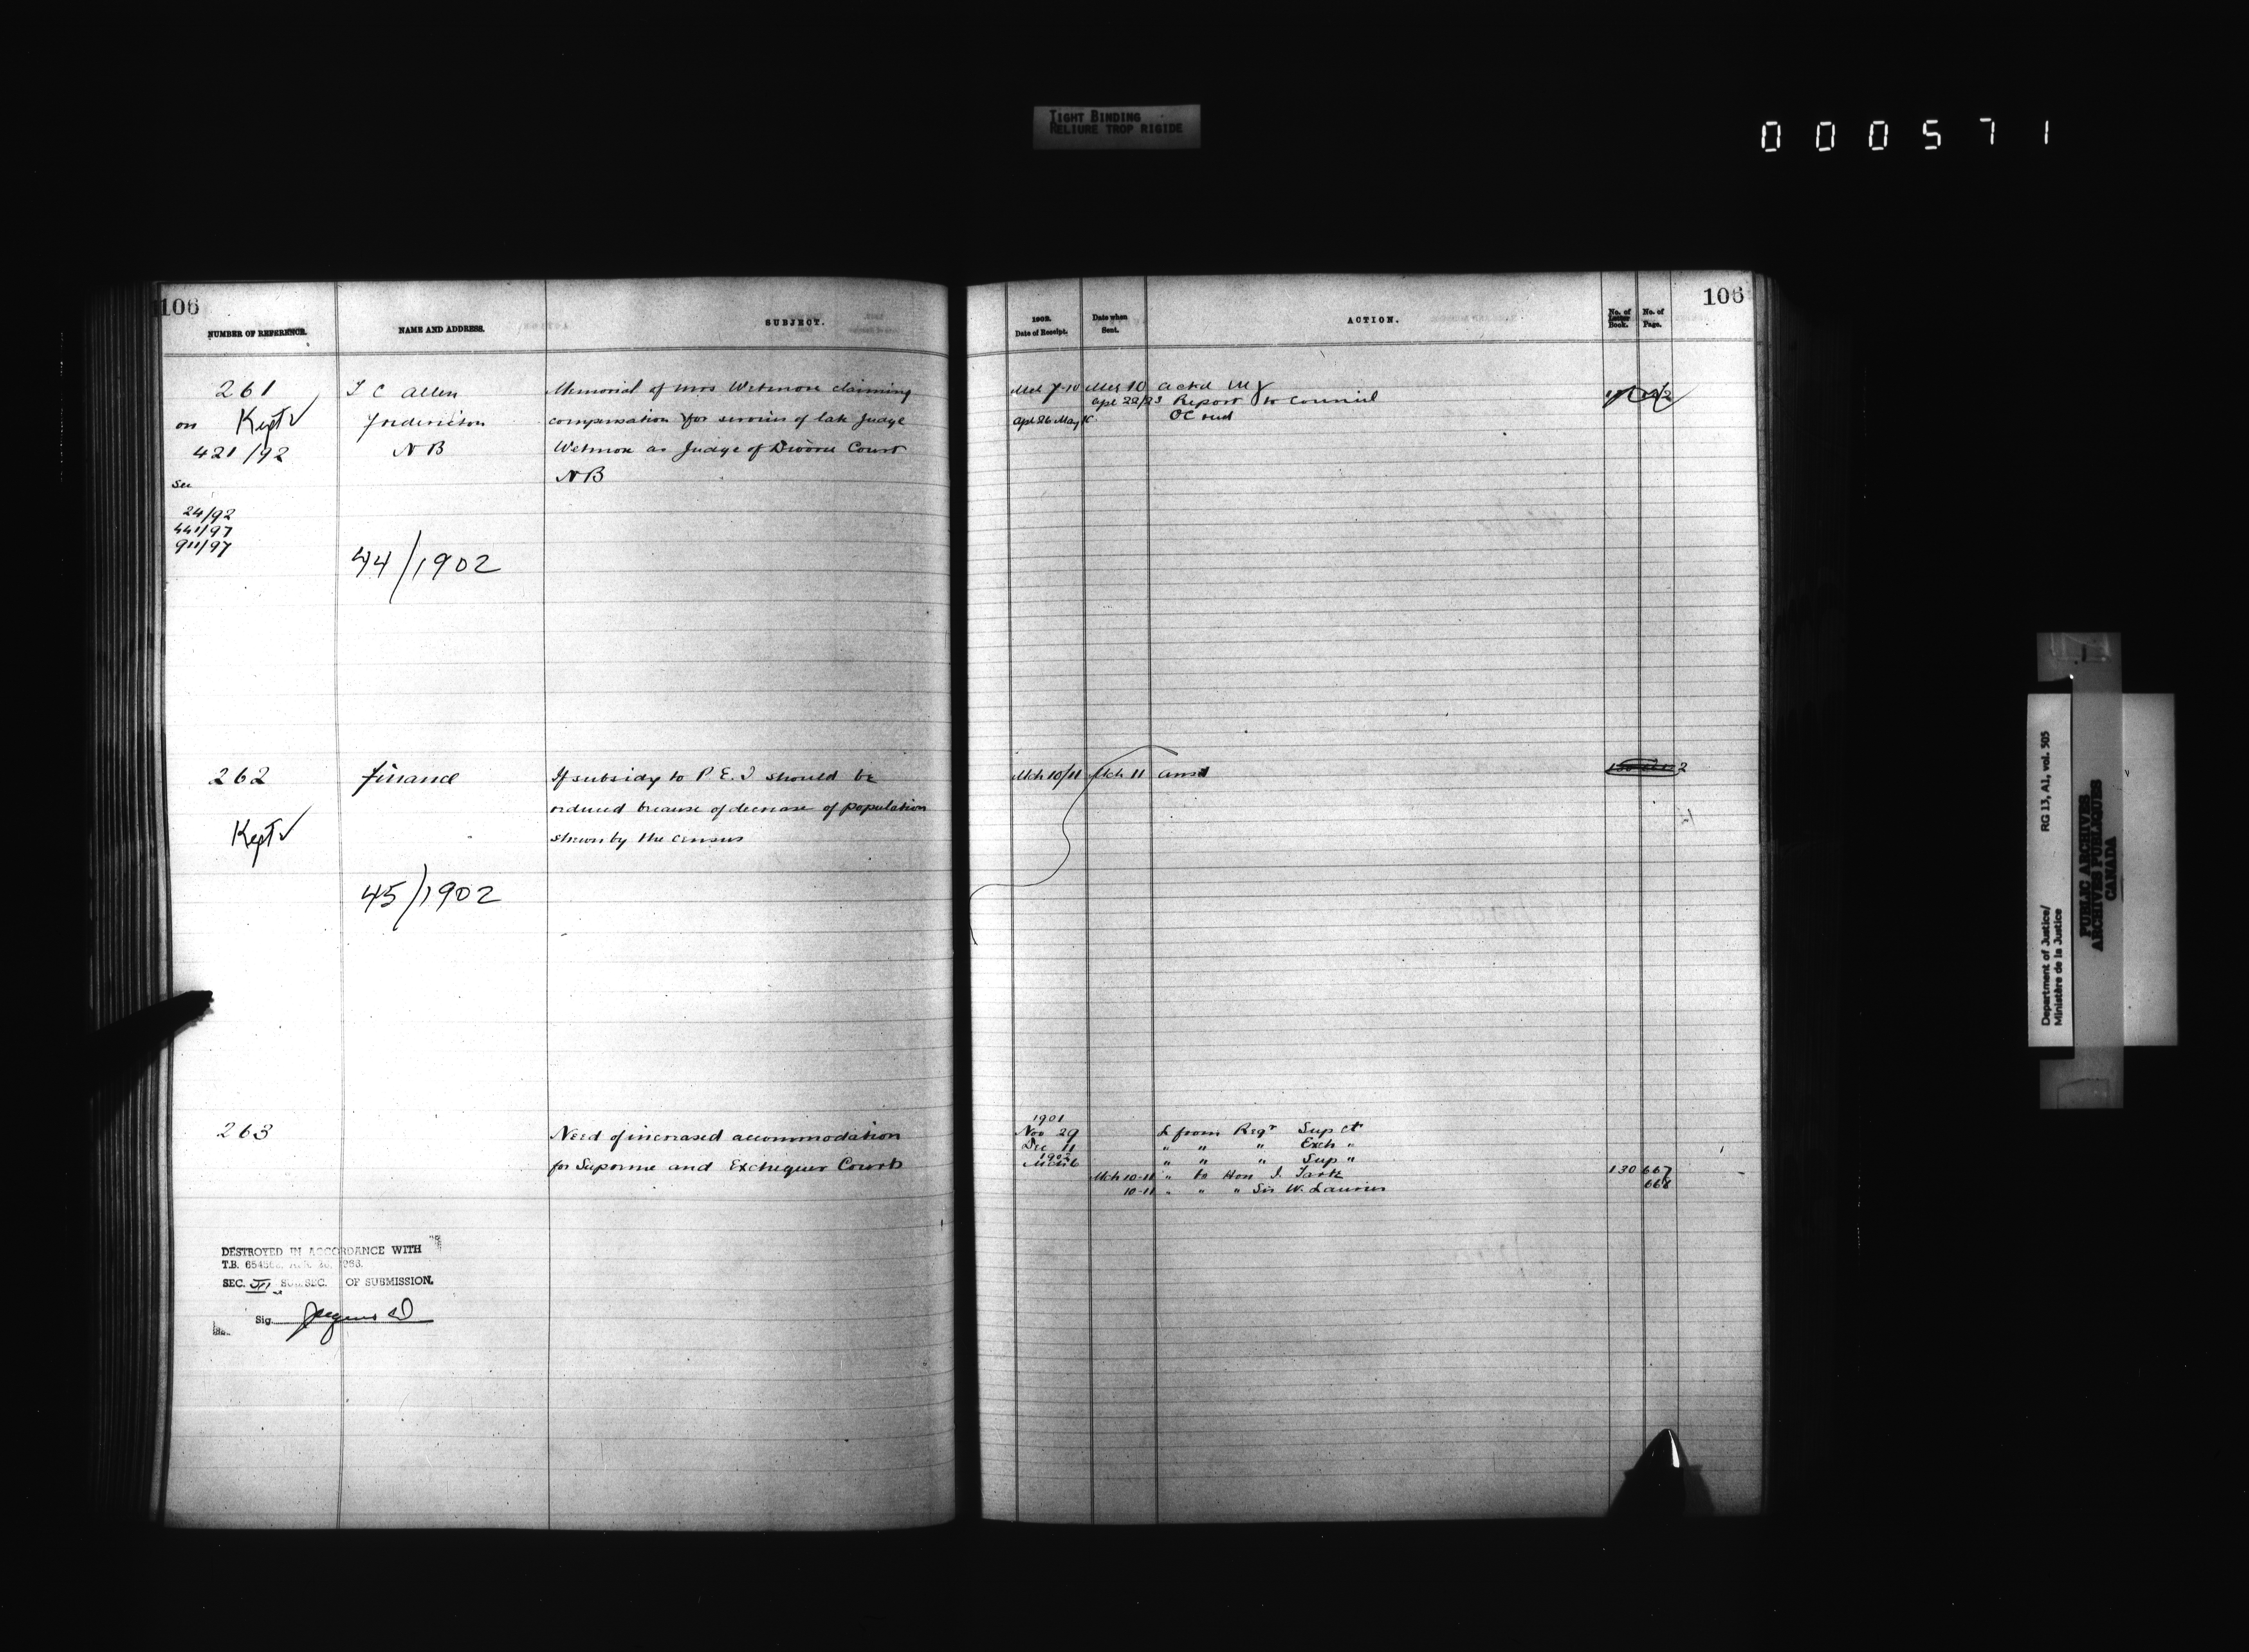 TIGHT BINDING
RELIURE TROP RIGIDE
000571
106
NUMBER OF REFERENCE.
NAME AND ADDRESS.
SUBJECT.
261
on Kept ✓
421/92
See
24/92
441/97
911/97
T C Allen
Fredericton
N B
44/1902
Memorial of Mrs Wetmore claiming
compensation for services of late Judge
Wetmore as Judge of Divorce Court
N B
262
Kept ✓
Finance
45/1902
If subsidy to P. E. I should be
reduced because of decrease of population
shewn by the census
263
Need of increased accommodation
for Supreme and Exchequer Courts
DESTROYED IN ACCORDANCE WITH
T.B.
SEC. III SUB.SEC. OF SUBMISSION.
Sig.
106
1902.
Date of Receipt.
Date when
Sent.
ACTION.
No. of
Letter
Book.
No. of
Page.
Mch 7-10 Mch 10 ackd
Apl 22/23 Report to Council
Apl 26 May OC recd
Mch 10/11 Mch 11 ansd
1901
Nov 29 L from Regr Sup Ct
Dec 11 " " " Exch "
1902
Mch 6 " " " Sup "
Mch 10-11 " to Hon J. Tarte 130 667
10-11 " " " Sir W. Laurier 668
Department of Justice/
Ministère de la Justice
RG 13, A1, vol. 505
PUBLIC ARCHIVES
ARCHIVES PUBLIQUES
CANADA